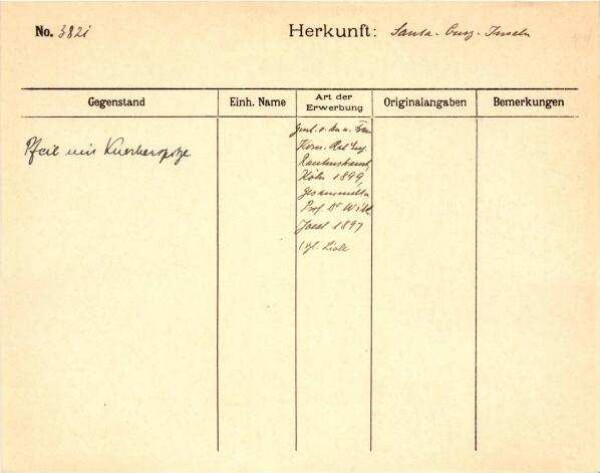 No. 3821
Herkunft: Santa-Cruz-Inseln
Gegenstand
Einh. Name
Art der Erwerbung
Originalangaben
Bemerkungen
Pfeil mit Knochenspitze
Kom. Rat Eug.
Rautenstrauch,
Köln 1899,
gesammelt v.
Prof. Dr
Joest 1897